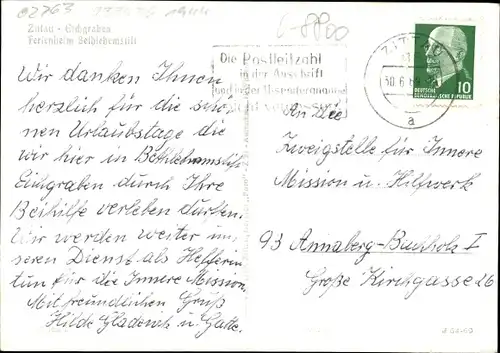 02763
Zittau - Eichgraben
Ferienheim Bethlehemstift
6-8800
Die Postleitzahl
in der Anschrift
und in der Absenderangabe
nicht vergessen
ZITTAU
30.6.69
a
DEUTSCHE
DEMOKRATISCHE REPUBLIK
10
Wir danken Ihnen
herzlich für die schö-
nen Urlaubstage die
wir hier in Bethlehemstift
Eichgraben durch Ihre
Beihilfe verleben durften.
Wir werden weiter un-
seren Dienst als Helferin
tun für die Innere Mission.
Mit freundlichem Gruß
Hilde u. Gatte.
An Die
Zweigstelle für Innere
Mission u. Hilfwerk
93 Annaberg-Buchholz I
Große Kirchgasse 26